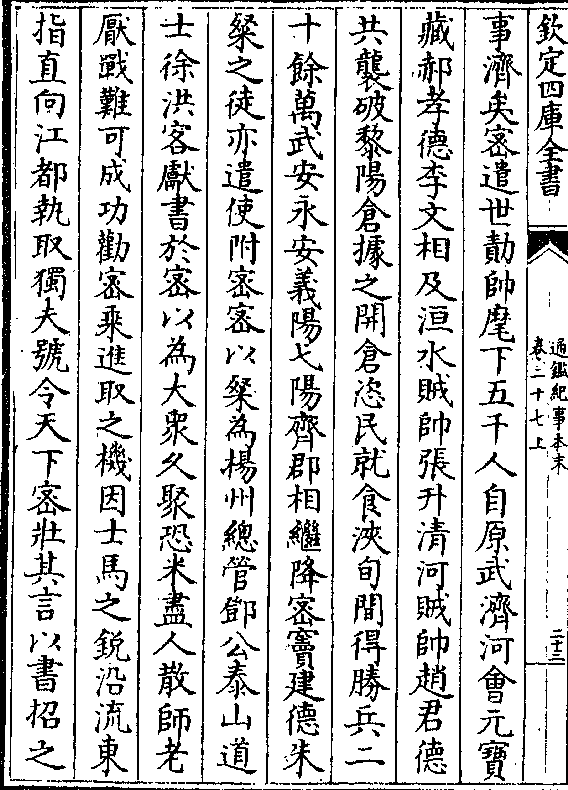 欽定四庫全書
通鑑紀事本末
卷二十七上
二十二
事濟矣密遣世勣帥麾下五千人自原武濟河會元寶
藏郝孝德李文相及洹水賊帥張升清河賊帥趙君德
共襲破黎陽倉據之開倉恣民就食浹旬間得勝兵二
十餘萬武安永安義陽弋陽齊郡相繼降密竇建德朱
粲之徒亦遣使附密密以粲為楊州總管鄧公泰山道
士徐洪客獻書於密以為大衆久聚恐米盡人散師老
厭戰難可成功勸密乗進取之機因士馬之銳沿流東
指直向江都執取獨夫號令天下密壯其言以書招之